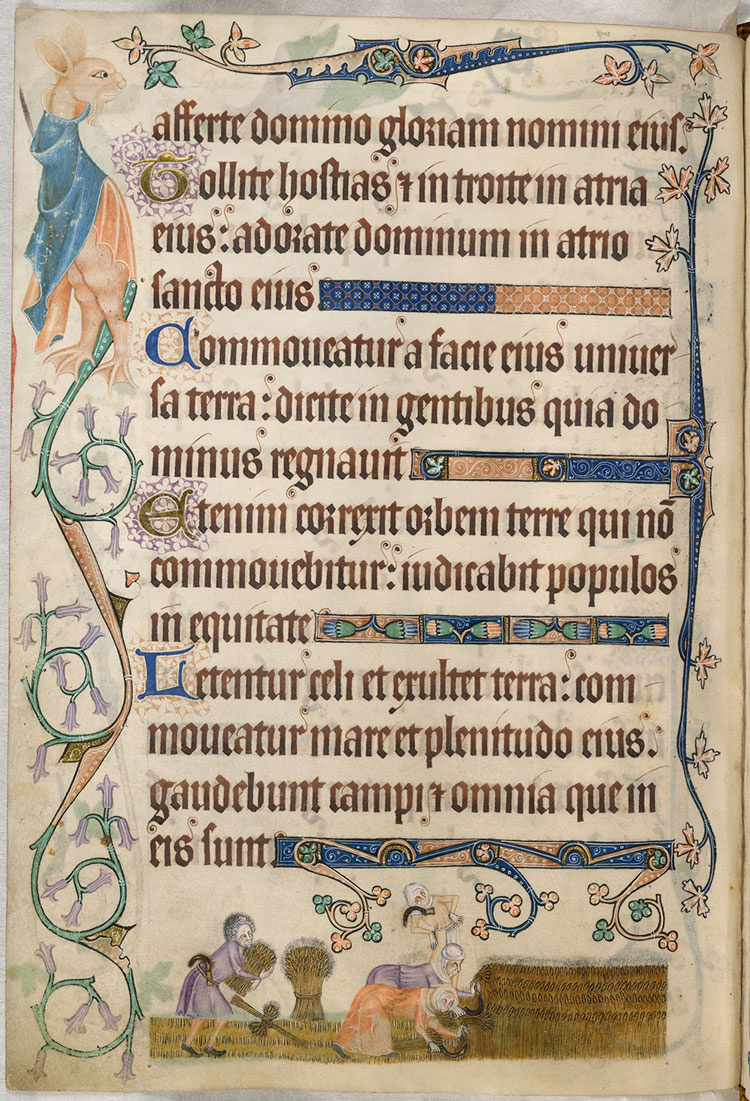 afferte domino gloriam nomini eius.
Tollite hostias ⁊ in troite in atria
eius: adorate dominum in atrio
sancto eius
Commoueatur a facie eius uniuer
sa terra: dicite in gentibus quia do
minus regnauit
Etenim correxit orbem terre qui nō
commouebitur: iudicabit populos
in equitate
Letentur celi et exultet terra: com
moueatur mare et plenitudo eius.
gaudebunt campi ⁊ omnia que in
eis sunt